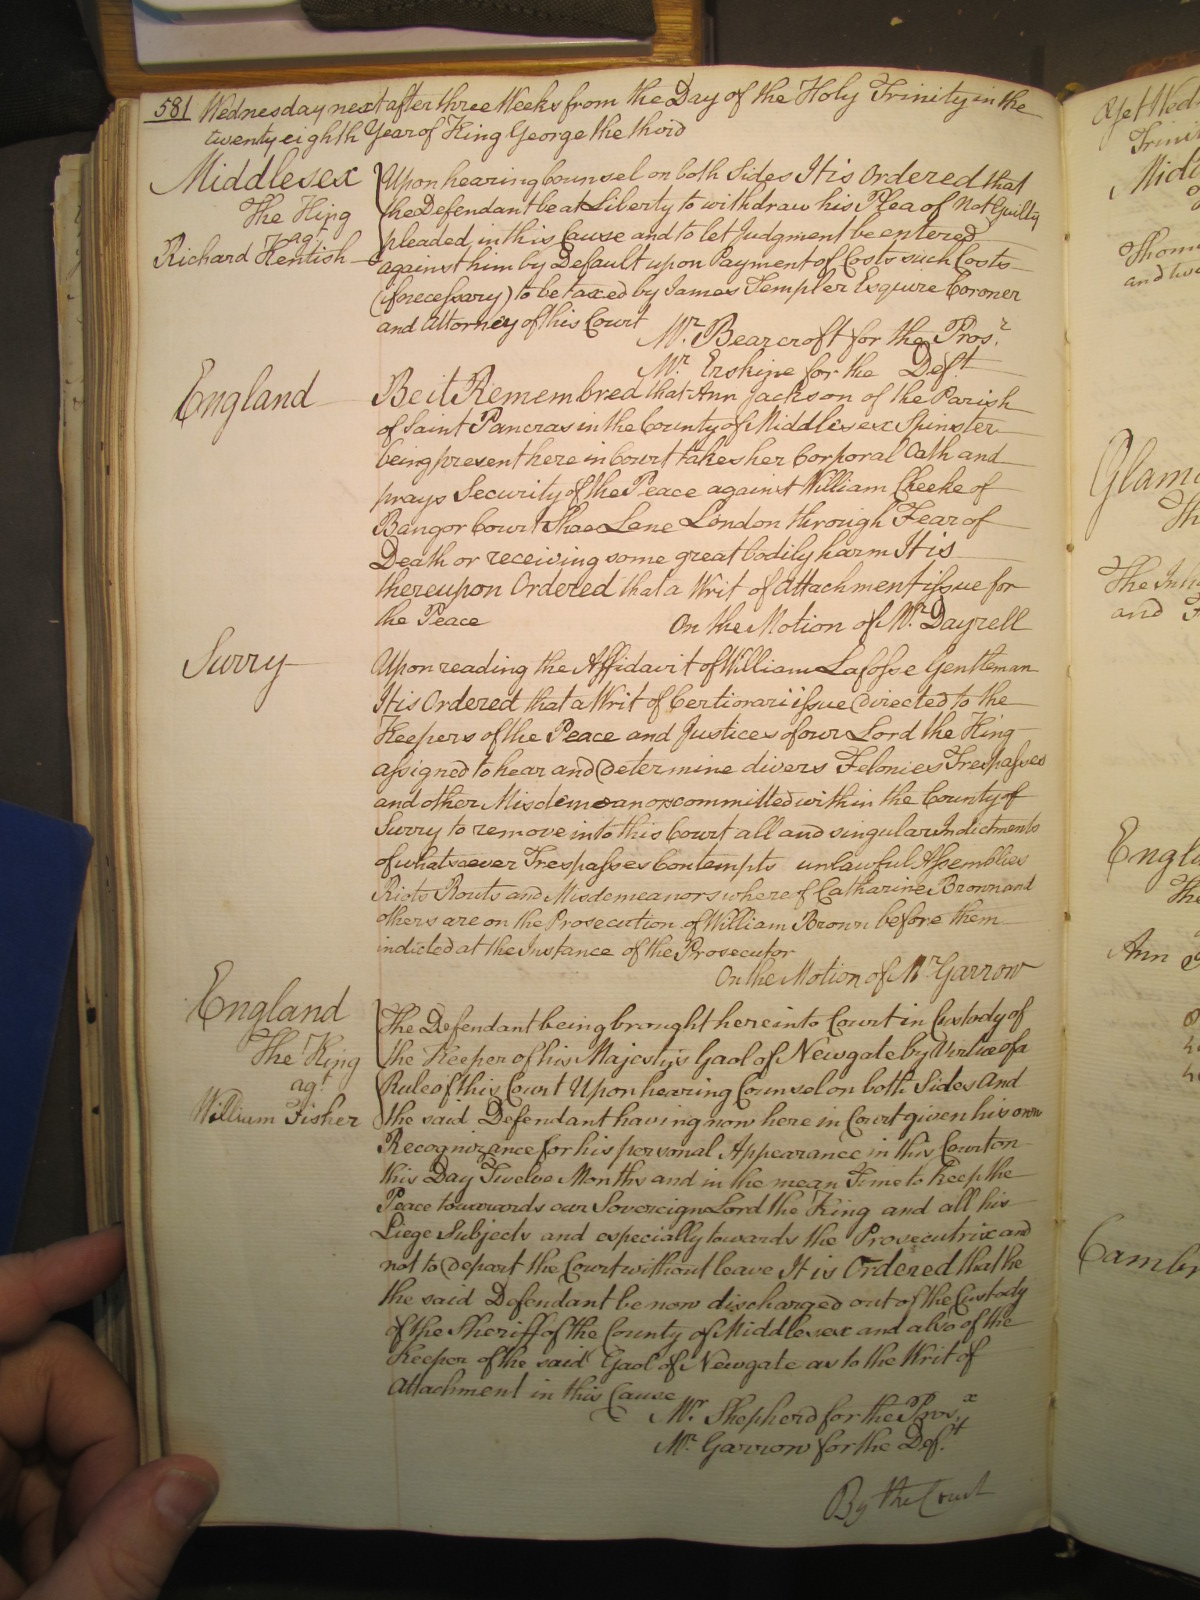 581 Wednesday next after three Weeks from the Day of the Holy Trinity in the
twenty eighth Year of King George the third
Middlesex
The King
agt
Richard Kentish
Upon hearing Counsel on both Sides It is Ordered that
the Defendant be at Liberty to withdraw his Plea of Not Guilty
pleaded in this Cause and to let Judgment be entered
against him by Default upon Payment of Costs such Costs
(if necessary) to be taxed by James Templer Esquire Coroner
and Attorney of this Court
Mr. Bearcroft for the Prosr.
Mr. Erskine for the Deft
England
Be it Remembred that Ann Jackson of the Parish
of Saint Pancras in the County of Middlesex Spinster
being present here in Court takes her Corporal Oath and
prays Security of the Peace against William Cheeke of
Bangor Court Shoe Lane London through Fear of
Death or receiving some great bodily harm It is
thereupon Ordered that a Writ of Attachment issue for
the Peace
On the Motion of Mr. Dayrell
Surry
Upon reading the Affidavit of William Lafosse Gentleman
It is Ordered that a Writ of Certiorari issue directed to the
Keepers of the Peace and Justices of our Lord the King
assigned to hear and determine divers Felonies Trespasses
and other Misdemeanors committed within the County of
Surry to remove into this Court all and singular Indictments
of whatsoever Trespasses Contempts unlawful Assemblies
Riots Routs and Misdemeanors whereof Catharine Brown and
others are on the Prosecution of William Brown before them
indicted at the Instance of the Prosecutor
On the Motion of Mr. Garrow
England
The King
agt
William Fisher
The Defendant being brought here into Court in Custody of
the Keeper of his Majesty's Gaol of Newgate by Virtue of a
Rule of this Court Upon hearing Counsel on both Sides And
the said Defendant having now here in Court given his own
Recognizance for his personal Appearance in this Court on
this Day Twelve Months and in the mean Time to keep the
Peace towards our Sovereign Lord the King and all his
Liege Subjects and especially towards the Prosecutrix and
not to depart the Court without leave It is Ordered that the
the said Defendant be now discharged out of the Custody
of the Sheriff of the County of Middlesex and also of the
Keeper of the said Gaol of Newgate as to the Writ of
Attachment in this Cause
Mr. Shepherd for the Prosx.
Mr. Garrow for the Deft.
By the Court